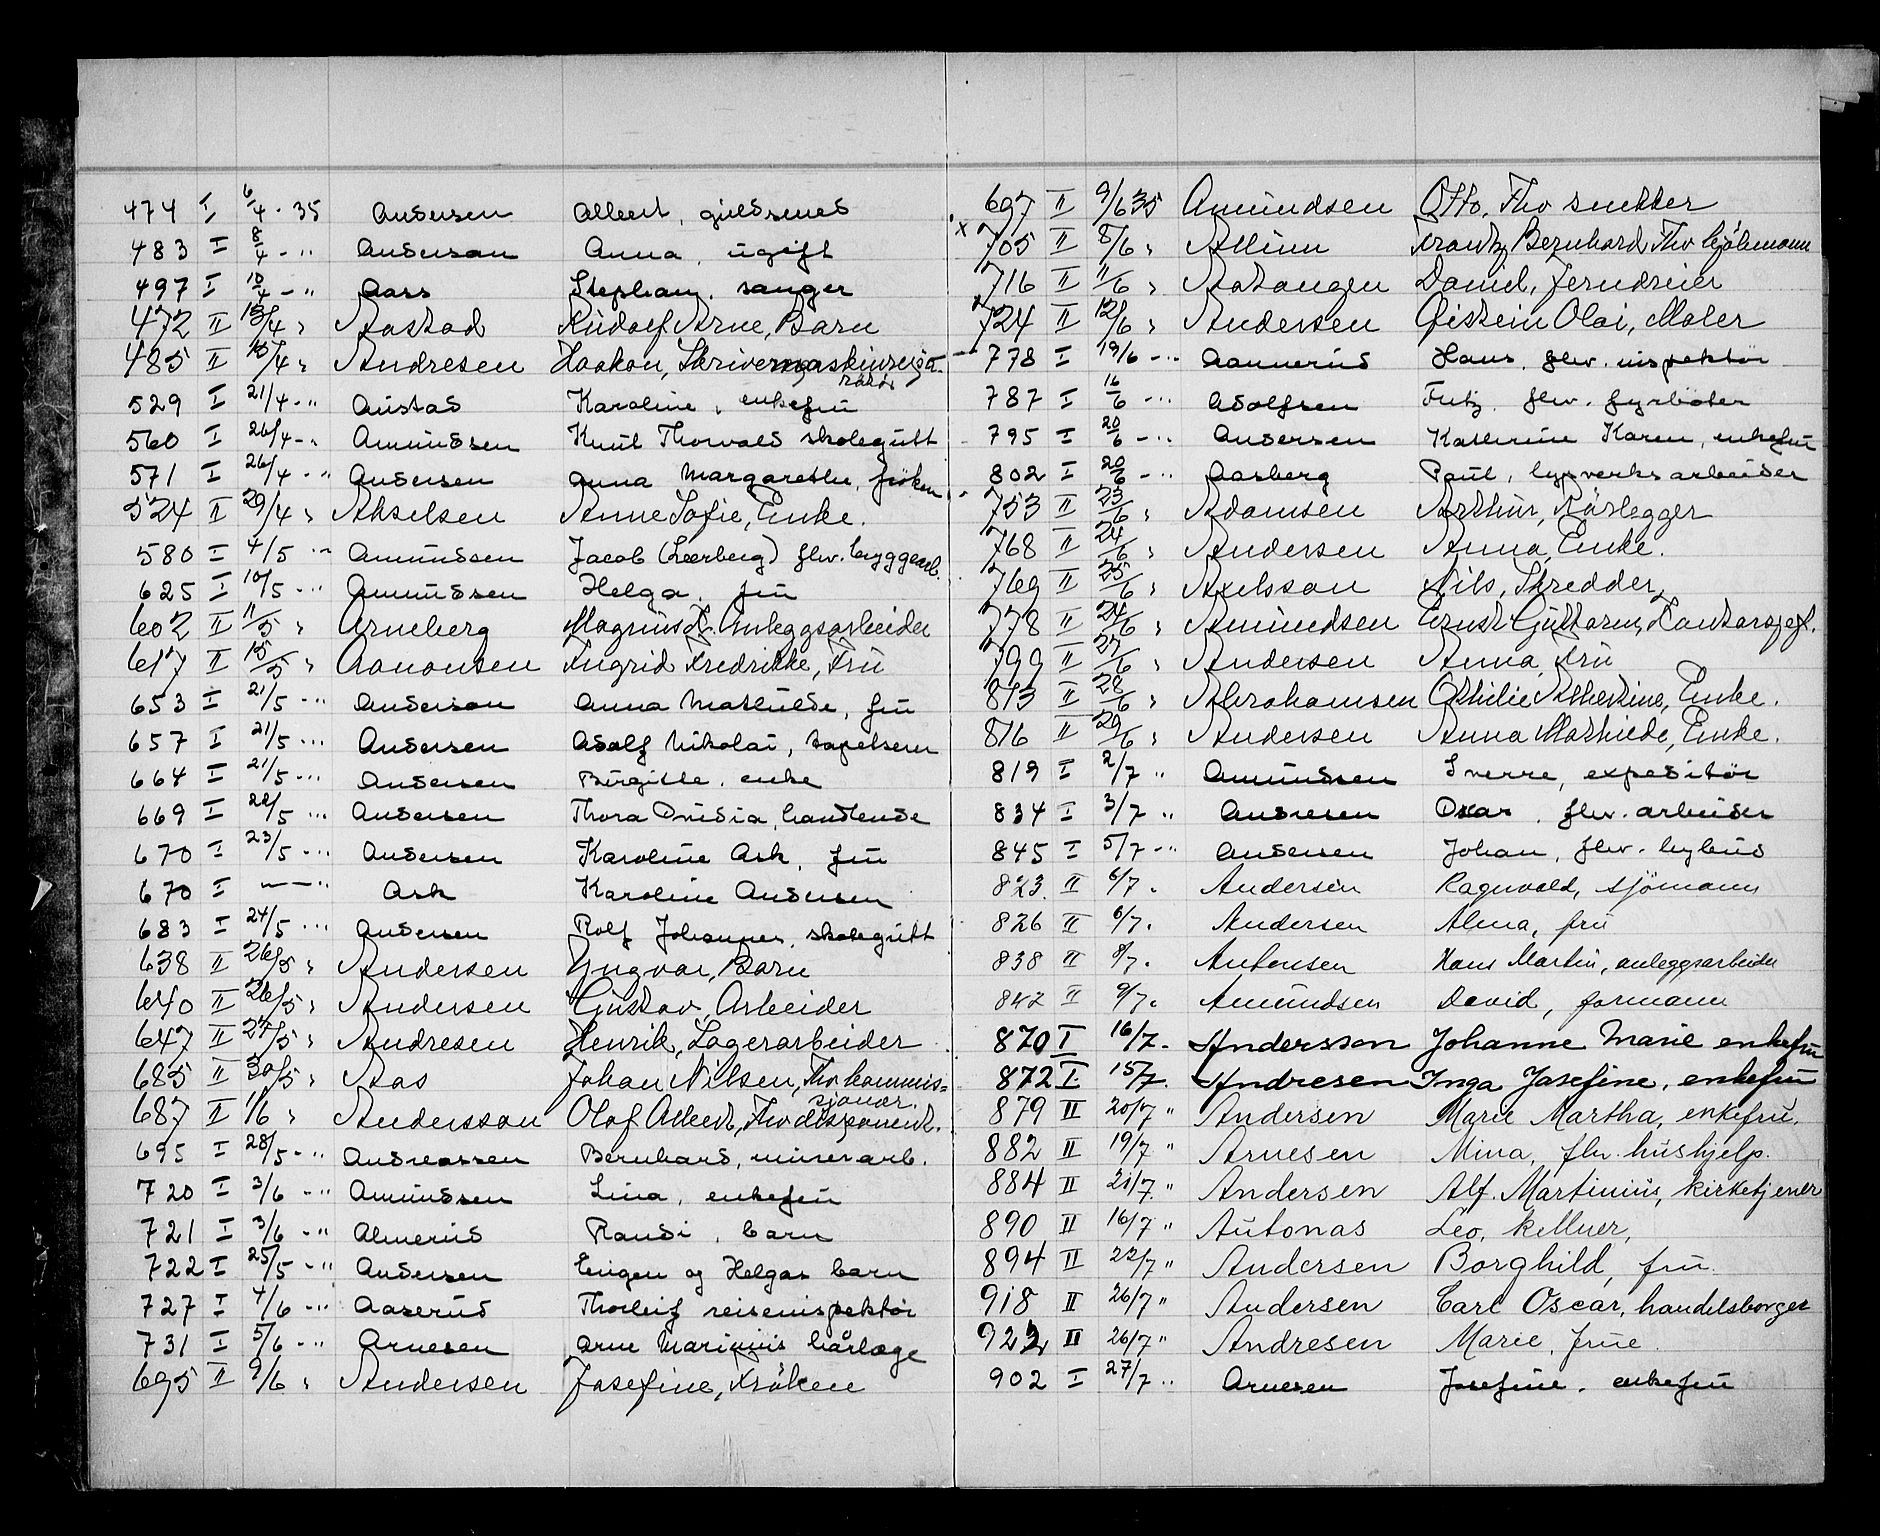 474 I 6/4 - 35 Andersen Albert, gullsmed
483 I 8/4 - " Anderson Anna, ugift
497 I 10/4 - " Aars Stephan, sanger
472 II 13/4 " Aastad Rudolf Arne, Barn
485 II 15/4 " Andresen Haakon, Skrivemaskinrepa-
ratør
529 I 21/4 - " Austad Karoline, enkefru
560 I 26/4 - " Amundsen Knut Thorvald skolegutt
571 I 26/4 - " Andersen Anna Margarethe, frøken
524 II 29/4 " Akselsen Anne Sofie, Enke.
580 I 4/5 - " Amundsen Jacob (Leerberg) fhv. bryggearb.
625 I 10/5 - " Amundsen Helga, fru
602 II 11/5 " Arneberg Magnus K. Anleggsarbeider
617 II 15/5 " Aanonsen Ingrid Fredrikke, Fru
653 I 21/5 - " Anderson Anna Mathilde, fru
657 I 21/5 - " Andersen Adolf Nikolai, tapetserer
664 I 21/5 - " Andersen Birgitte, enke
669 I 22/5 - " Andersen Thora Ovidia, handlende
670 I 23/5 - " Andersen Karoline Ask, fru
670 I — — " Ask Karoline Andersen
683 I 24/5 - " Andersen Rolf Johannes, skolegutt
638 II 26/5 " Andersen Yngvar, Barn
640 II 26/5 " Andersen Gustav, Arbeider
647 II 27/5 " Andresen Henrik, Lagerarbeider
685 II 30/5 " Aas Johan Nilsen, Fhv kommis=
sjonær.
687 II 1/6 " Andersson Olof Albert, Fhv disponent.
695 I 28/5 - " Andreassen Bernhard, murerarb.
720 I 3/6 - " Amundsen Lina, enkefru
721 I 3/6 - " Almerud Randi, barn
722 I 25/5 - " Andersen Eugen og Helgas barn
727 I 4/6 - " Aaserud Thorleif reiseinspektør
731 I 5/6 - " Arnesen Arne Marinius
695 II 9/6 " Andersen Josefine, Frøken
697 II 9/6 35 Amundsen Otto, Fhv snekker
x 705 II 8/6 " Allum Frantz Bernhard, Fhv
716 II 11/6 " Aatangen Daniel, Jerndreier
724 II 12/6 " Andersen Øistein Olai, Maler
778 I 19/6 - " Aannerud Hans, fhv. inspektør
787 I 16/6 - " Adolfsen Fritz, fhv. fyrbøter
795 I 20/6 - " Andersen Kathrine Karen, enkefru
802 I 20/6 - " Aasberg Paul, lysverksarbeider
753 II 23/6 " Adamsen Arthur, Rørlegger
768 II 24/6 " Andersen Anna, Enke.
769 II 25/6 " Axelsson Nils, Skredder,
778 II 24/6 " Amundsen Ernst Guttorm, Kontorsjef.
799 II 27/6 " Andersen Anna, Fru
813 II 28/6 " Abrahamsen Othilie Albertine, Enke.
816 II 29/6 " Andersen Anna Mathilde, Enke.
819 I 2/7 " Amundsen Sverre, expeditør
834 I 3/7 " Andresen Oskar, fhv. arbeider
845 I 5/7 - " Andersen Johan, fhv. bybud
823 II 6/7. Andersen Ragnvald, sjømann
826 II 6/7. Andersen Alma, fru
838 II 8/7. Antonsen Hans Martin, anleggsarbeider
842 II 9/7. Amundsen David, formann
870 I 16/7. Andersson Johanne Marie enkefru
872 I 15/7. Andresen Inga Josefine, enkefru
879 II 20/7 " Andersen Marie Martha, enkefru.
882 II 19/7 " Arnesen Mina, fhv. hushjelp.
884 II 21/7. " Andersen Alf. Martinius, kirketjener
890 II 16/7 " Autonas Leo, kellner,
894 II 22/7 " Andersen Borghild, fru.
918 II 26/7 " Andersen Carl Oscar, handelsborger
922 II 26/7 " Andresen Marie, frue.
902 I 27/7 " Arnesen Josefine, enkefru